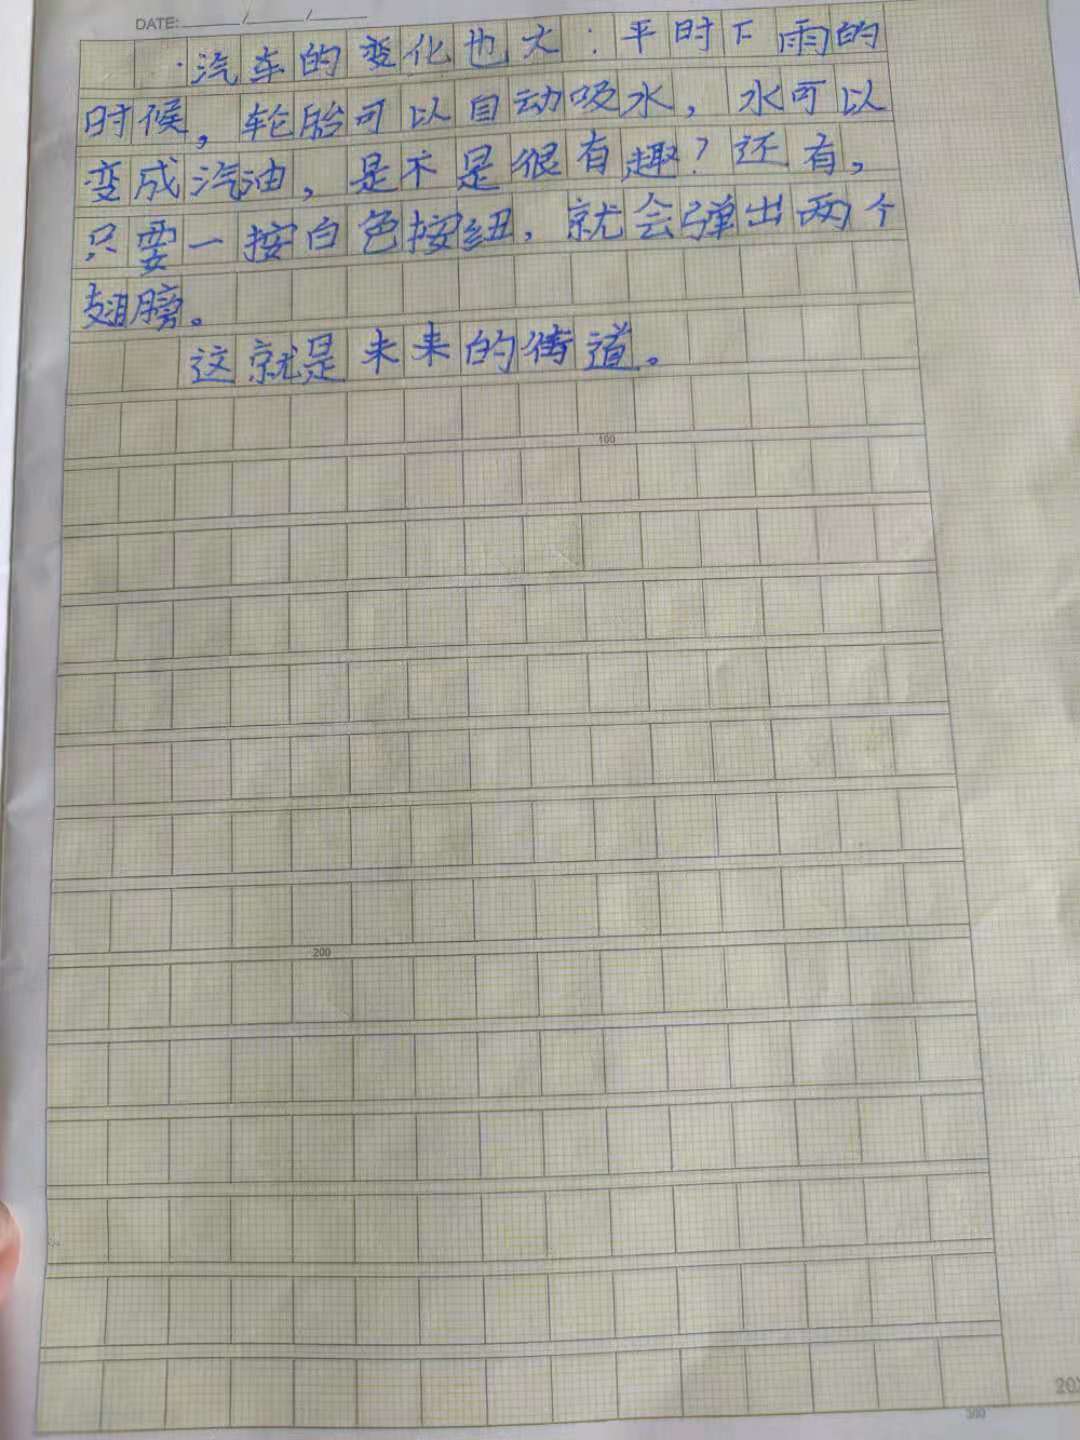 DATE: ____/____/____
汽车的变化也大：平时下雨的
时候，轮胎可以自动吸水，水可以
变成汽油，是不是很有趣？还有，
只要一按白色按纽，就会弹出两个
翅膀。
这就是未来的街道。
100
200
300